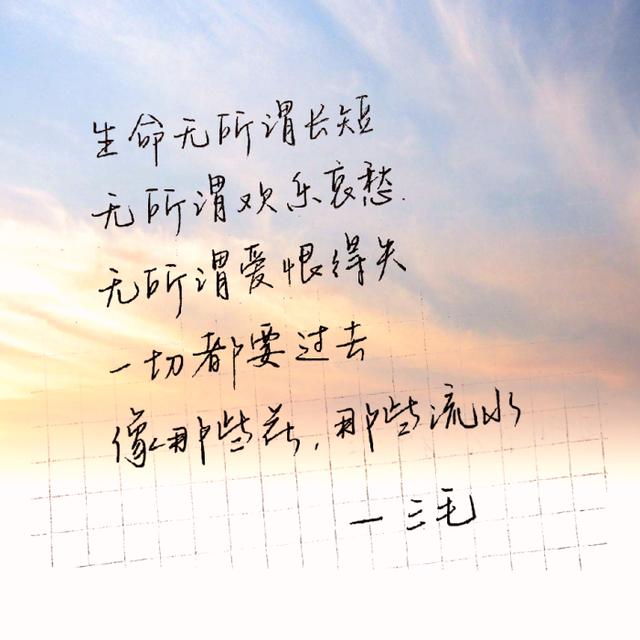 生命无所谓长短
无所谓欢乐哀愁
无所谓爱恨得失
一切都要过去
像那些花，那些流水
—三毛